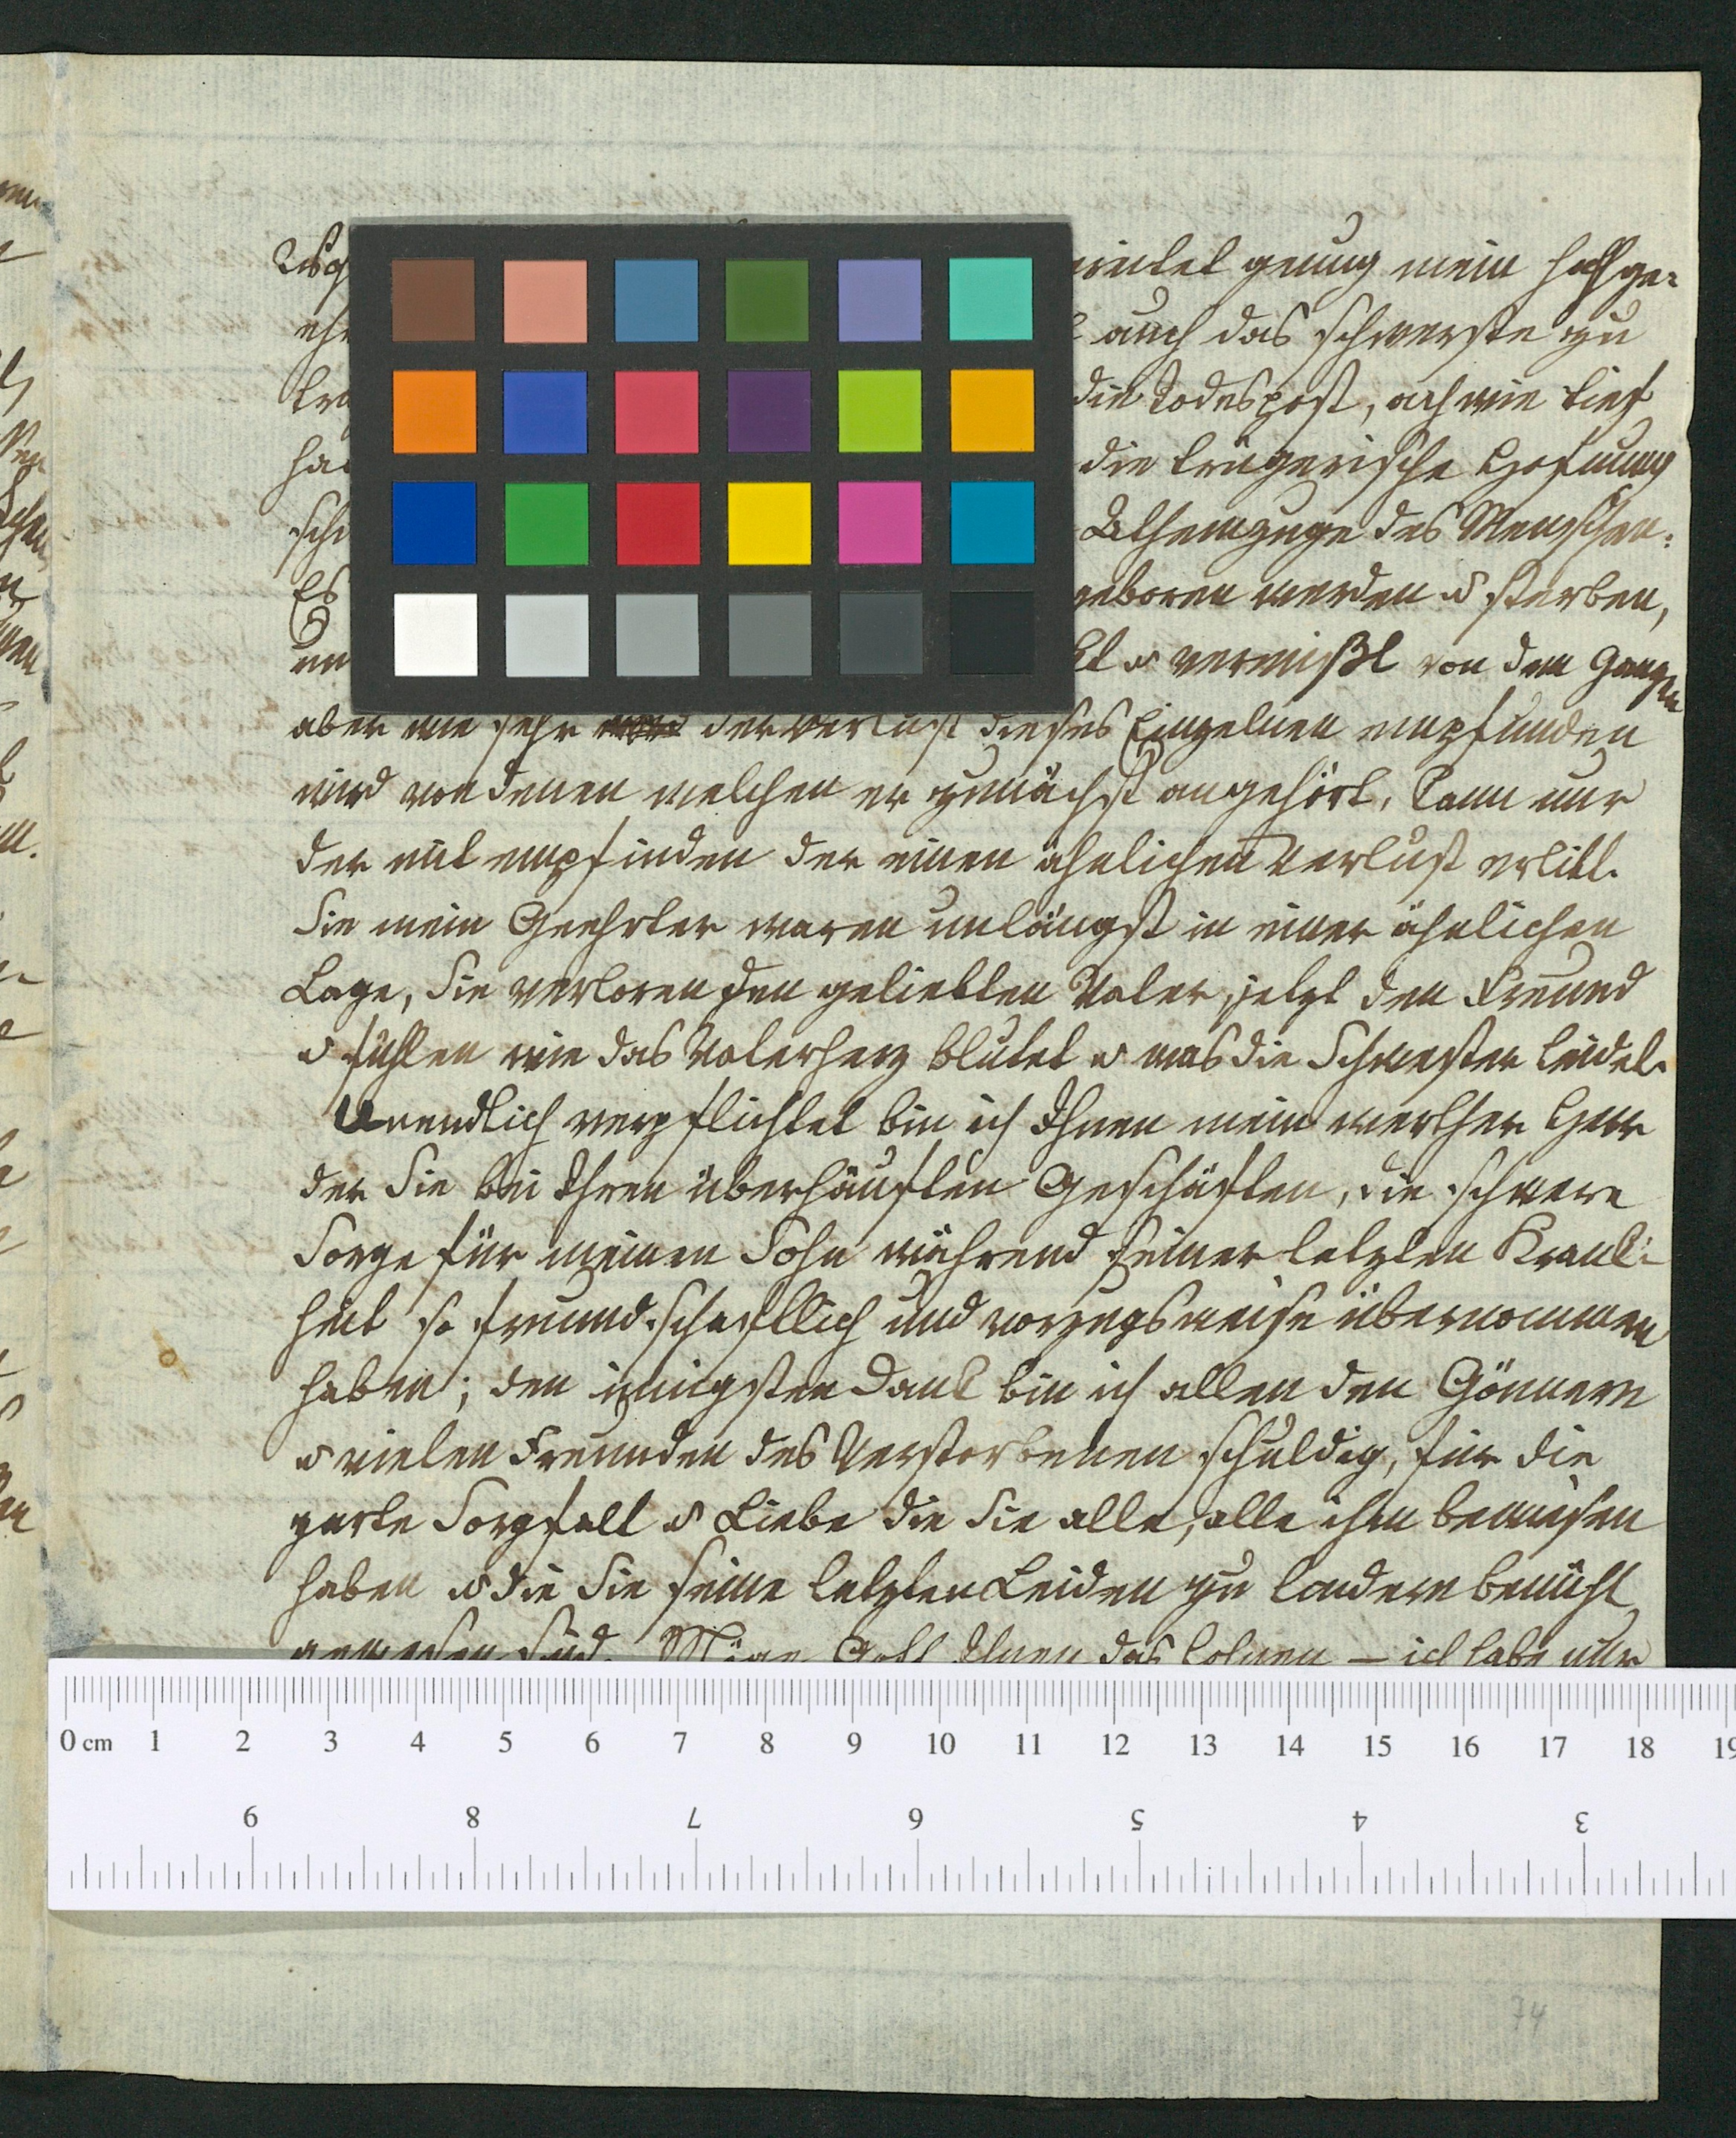 genug mein hochge-
auch das schwerste zu
die Todespost, ach wie tief
die trügerische Hofnung
Athemzuge des Menschen:
Es geboren werden u sterben,
u vermißt von dem Ganzen
aber wie sehr der Verlust dieses Einzelnen empfunden
wird von denen welchen er zunächst angehört, kann nur
der mit empfinden der einen ähnlichen Verlust erlitt.
Sie mein Geehrter waren unlängst in einer ähnlichen
Lage, Sie verloren den geliebten Vater, jetzt den Freund
u fühlen wie das Vaterherz blutet u was die Schwester leidet.
Unendlich verpflichtet bin ich Ihnen mein werther Herr
der Sie bei Ihren überhäuften Geschäften, die schwere
Sorge für meinen Sohn während seiner letzten Krank-
heit so freundschaftlich und vorzugsweise übernommen
haben; den innigsten Dank bin ich allen den Gönnern
u vielen Freunden des Verstorbenen schuldig, für die
zarte Sorgfalt u Liebe die Sie alle, alle ihm bewiesen
haben u die Sie seine letzten Leiden zu lindern bemüht
gewesen sind. Möge Gott Ihnen das lohnen – ich habe nur
0 cm 1 2 3 4 5 6 7 8 9 10 11 12 13 14 15 16 17 18 19
9 8 7 6 5 4 3
74